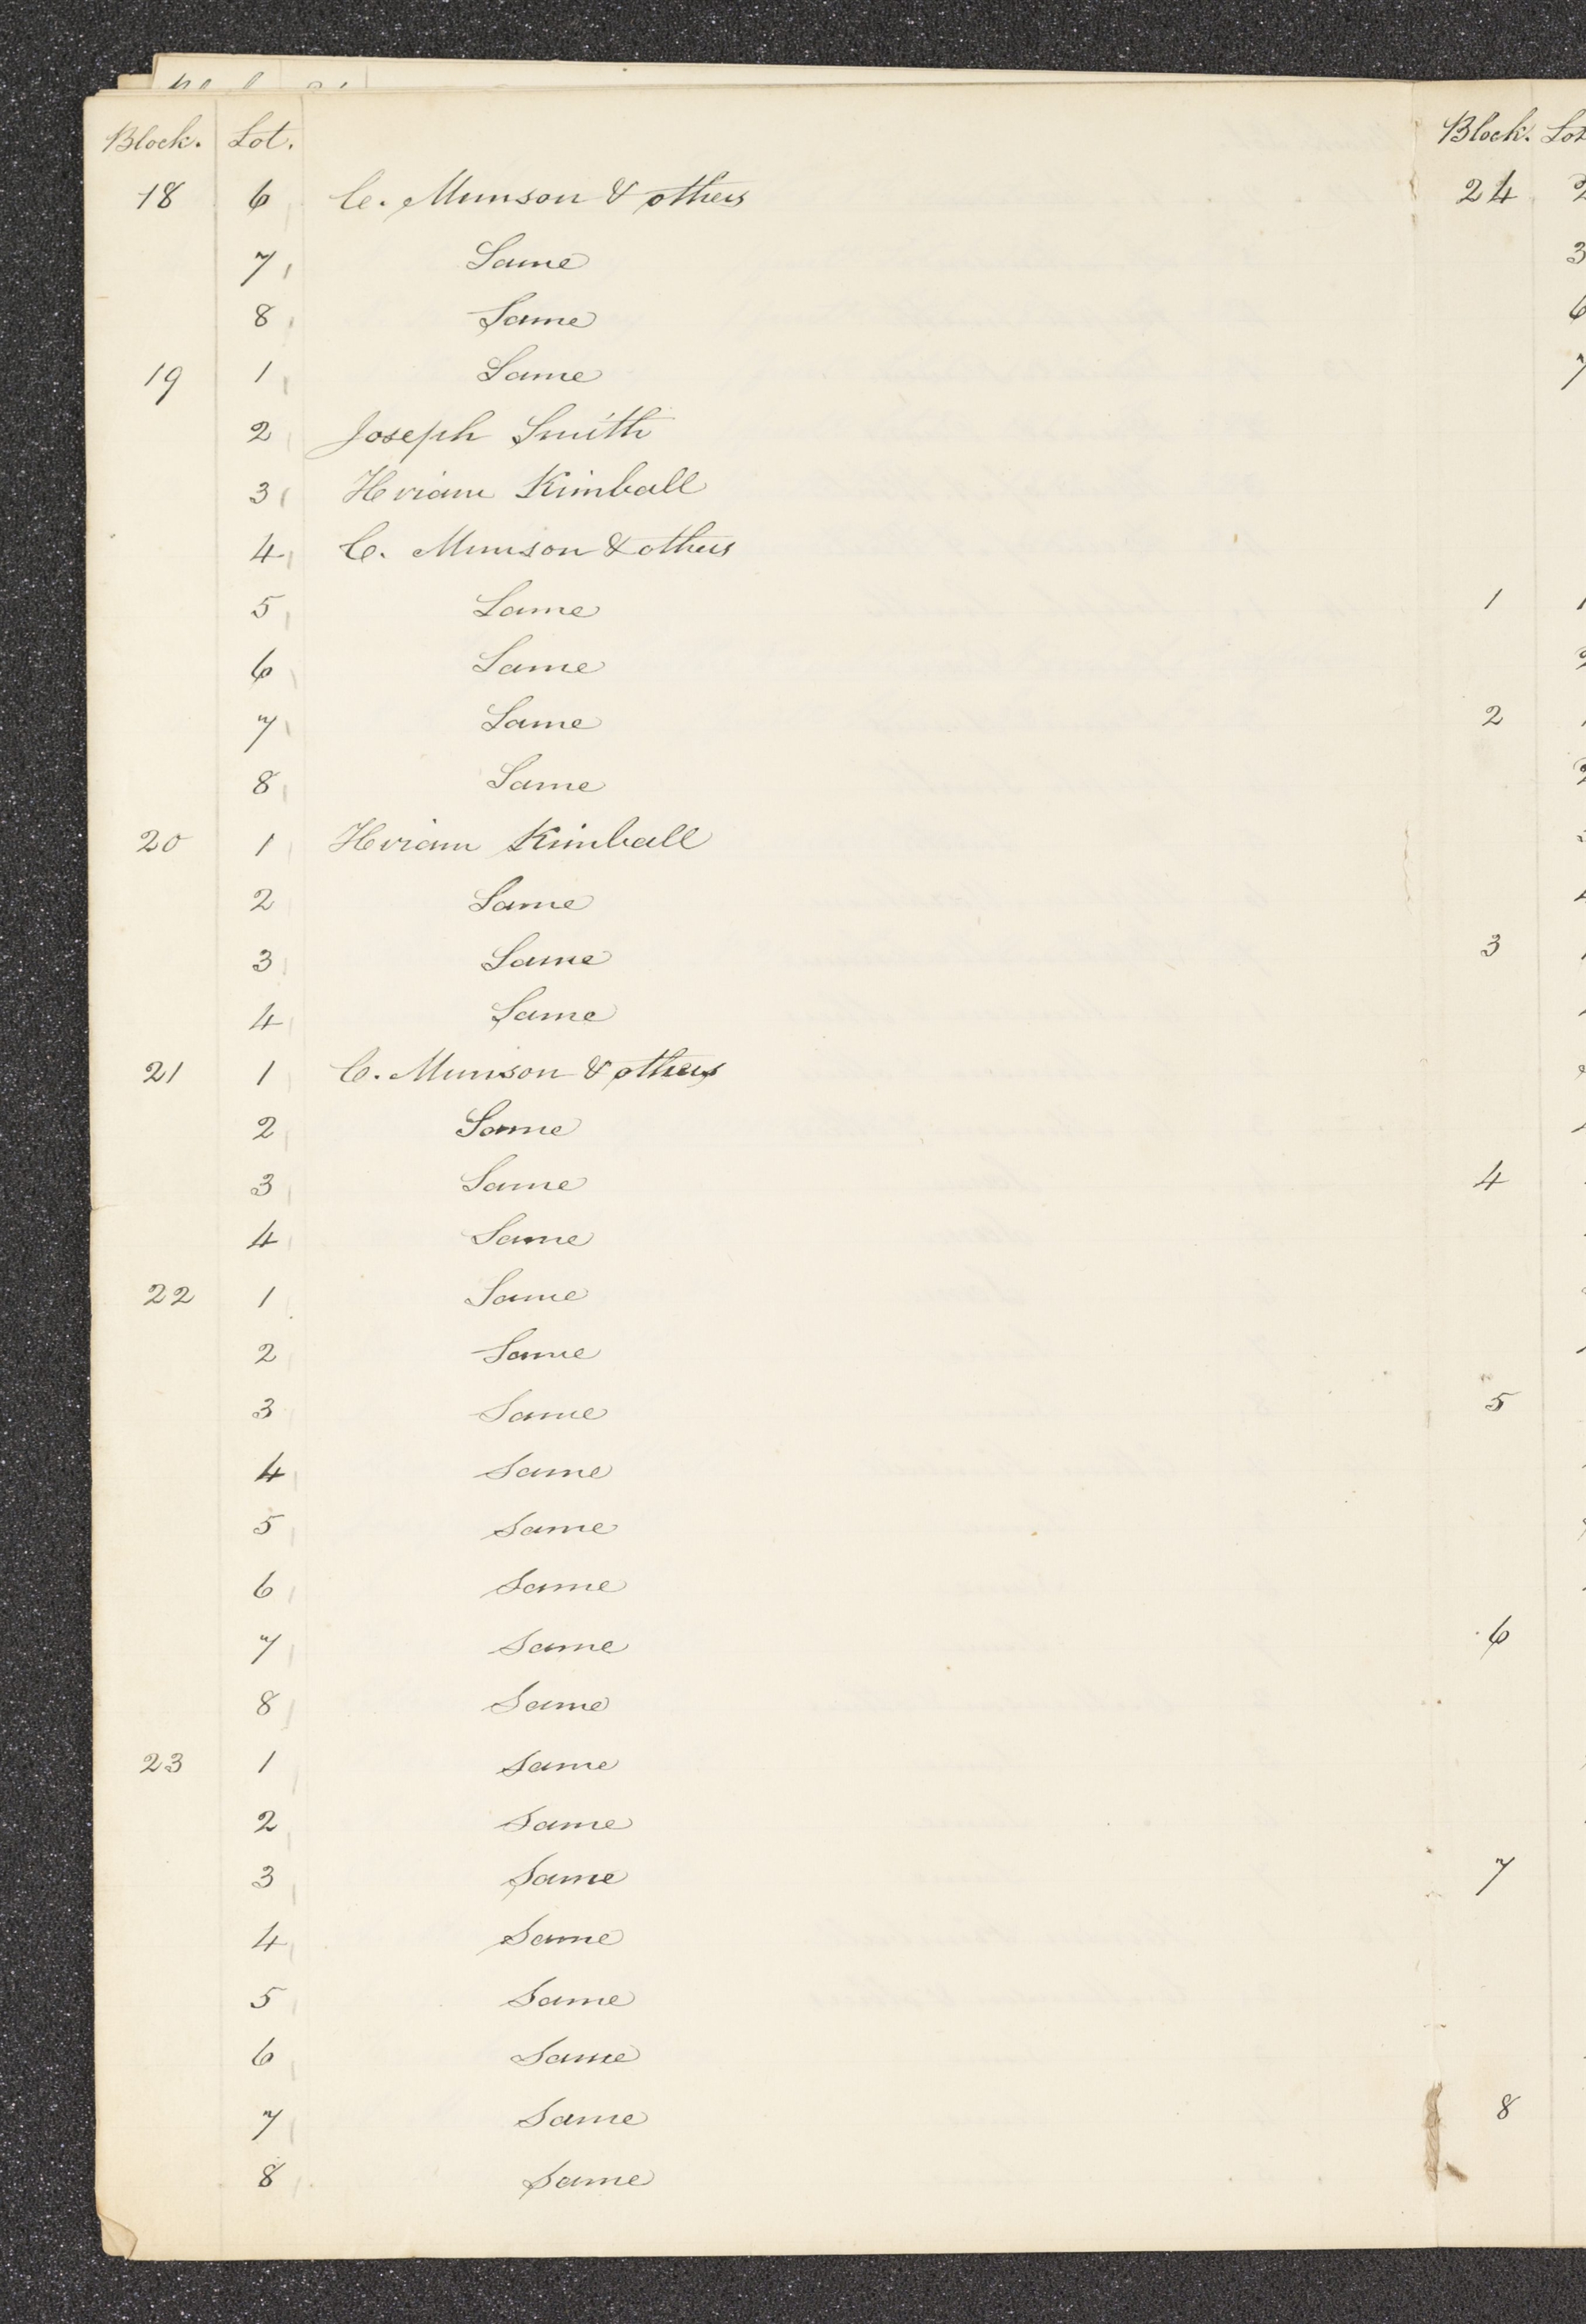 Block. Lot.
18 6 C. Munson & others
7 Same
8 Same
19 1 Same
2 Joseph Smith
3 Hiram Kimball
4 C. Munson & others
5 Same
6 Same
7 Same
8 Same
20 1 Hiram Kimball
2 Same
3 Same
4 Same
21 1 C. Munson & others
2 Same
3 Same
4 Same
22 1 Same
2 Same
3 Same
4 Same
5 Same
6 Same
7 Same
8 Same
23 1 Same
2 Same
3 Same
4 Same
5 Same
6 Same
7 Same
8 Same
Block. Lot
24 2
3
6
7
1 1
2
2
2
3
4
5
6
7
8